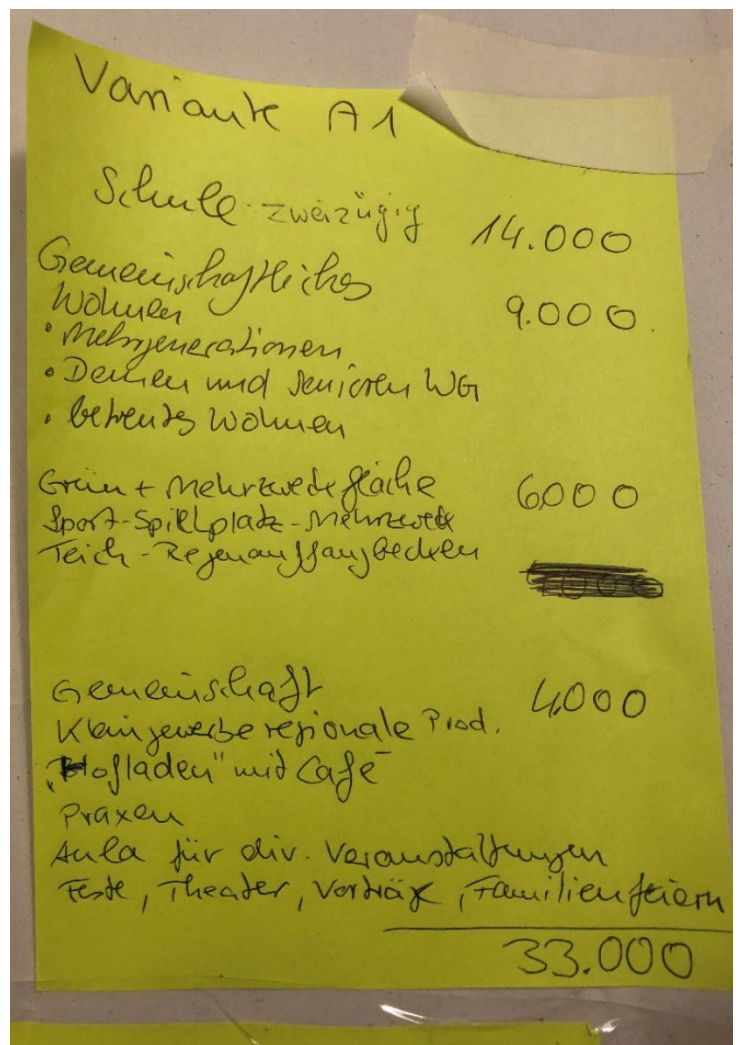 Variante A1
Schule - zweizügig 14.000
Gemeinschaftliches
Wohnen 9.000.
• Mehrgenerationen
• Demen und Senioren WG
• betreutes Wohnen
Grün + Mehrzweckfläche 6000
Sport-Spielplatz-Mehrzweck
Teich - Regenauffangbecken
Gemeinschaft 4.000
Kleingewerbe regionale Prod.
„Hofladen" mit Café
Praxen
Aula für div. Veranstaltungen
Feste, Theater, Vorträge, Familienfeiern
33.000